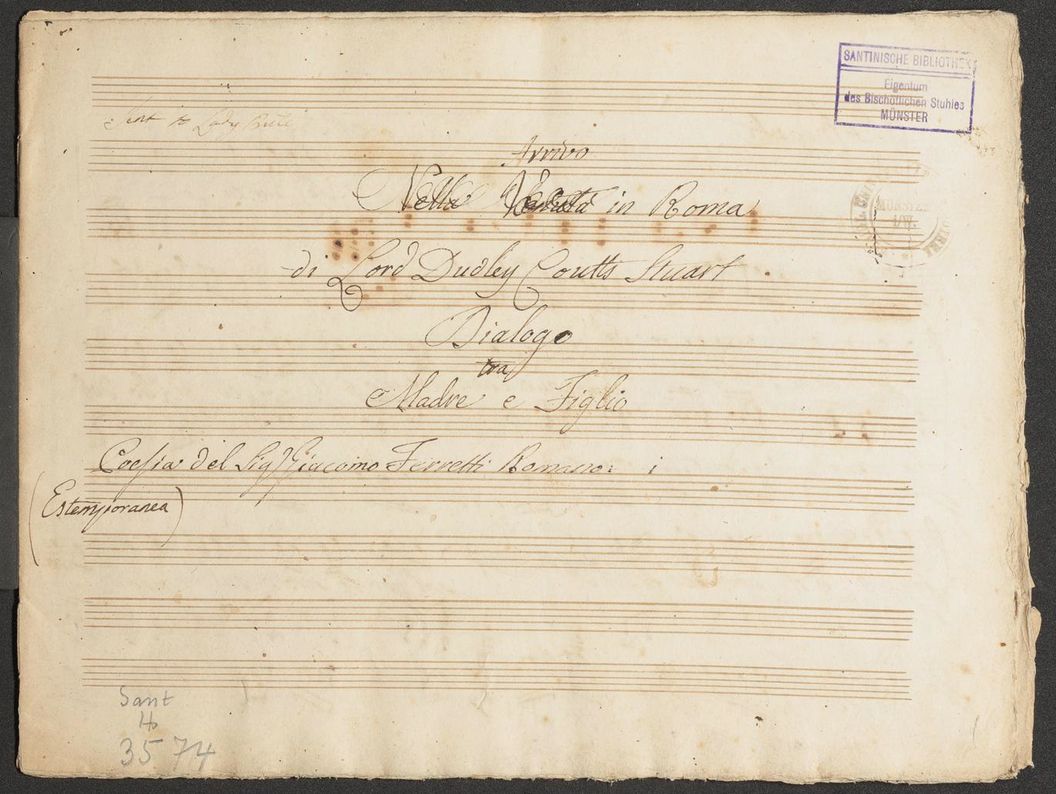 SANTINISCHE BIBLIOTHEK
Eigentum
des Bischöflichen Stuhles
MÜNSTER
Sent to Lady
Arrivo
Nella Venuta in Roma
di Lord Dudley Coutts Stuart
Dialogo
tra
Madre e Figlio
Poesia del Sig Giacomo Ferretti Romano
(Estemporanea)
MÜNSTER
Sant
Hs
3574